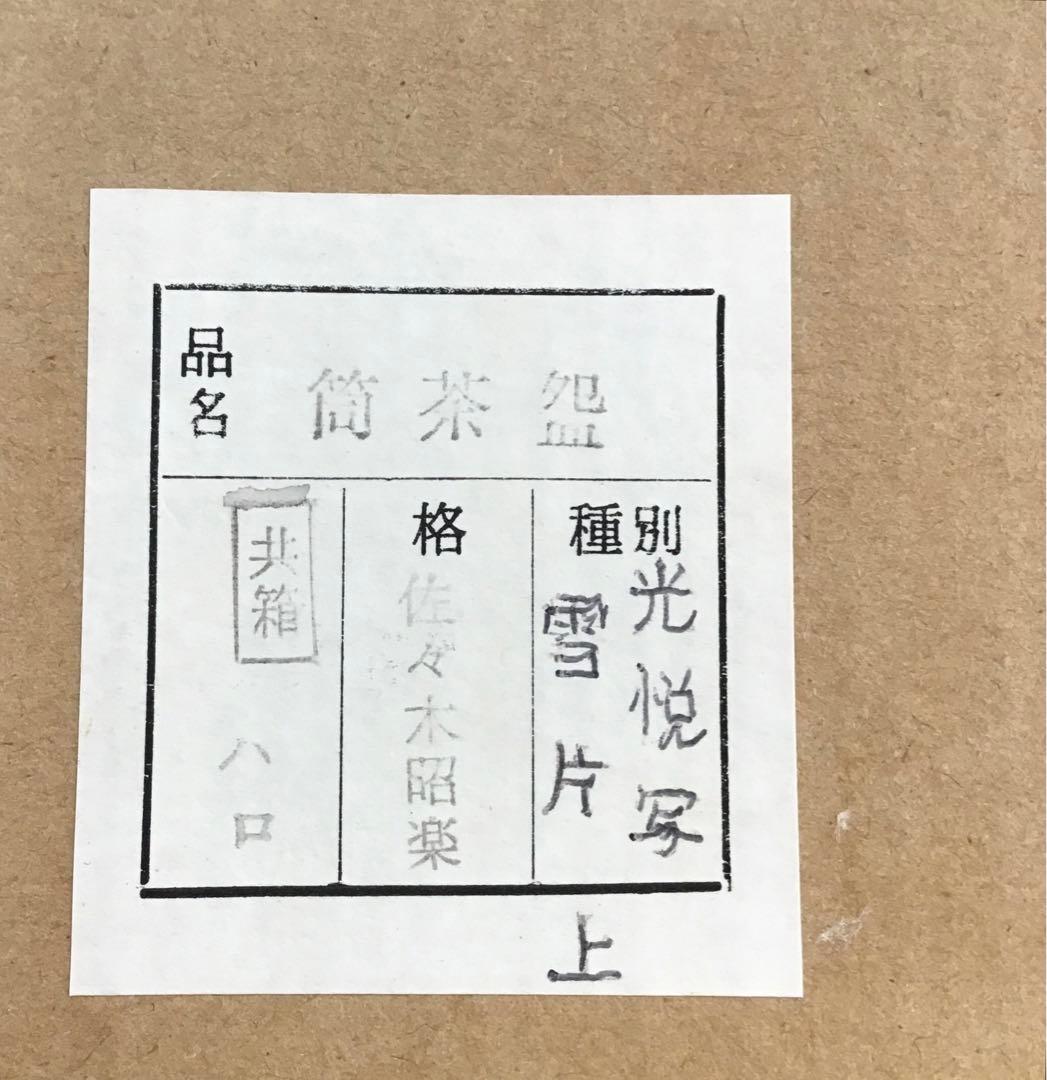 品名
筒茶盌
種別
光悦写
雪片
上
格
佐々木昭楽
共箱
ハロ